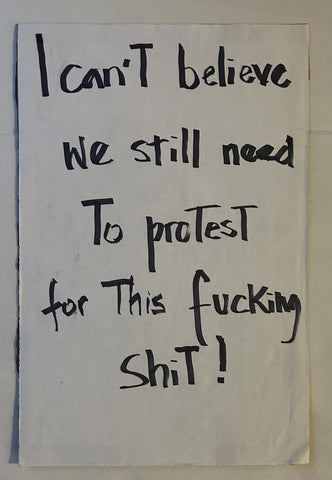 I can't believe
we still need
To protest
for This fucking
shit!